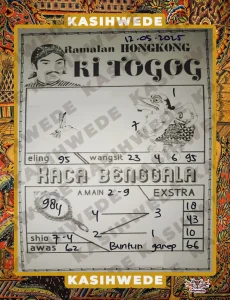 KASIHWEDE
12-05-2025
Ramalan HONGKONG
KI TOGOG
1
7
eling 95 wangsit 23 4 6 95
KACA BENGGALA
A MAIN 2-9 EKSTRA
984 4 3 18
43
2 1 10
shio 7-4
awas 62 Buntun ganep 66
KASIHWEDE